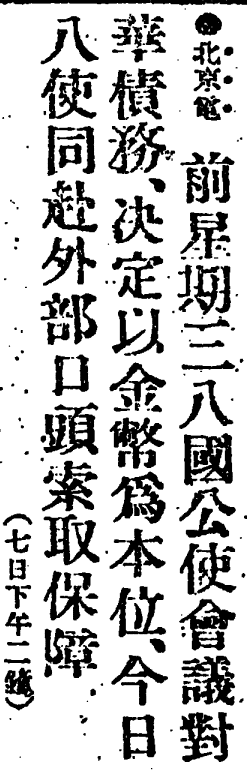 ●北京電　前星期三八國公使會議對
華債務、決定以金幣爲本位、今日
八使同赴外部口頭索取保障
（七日下午二鐘）